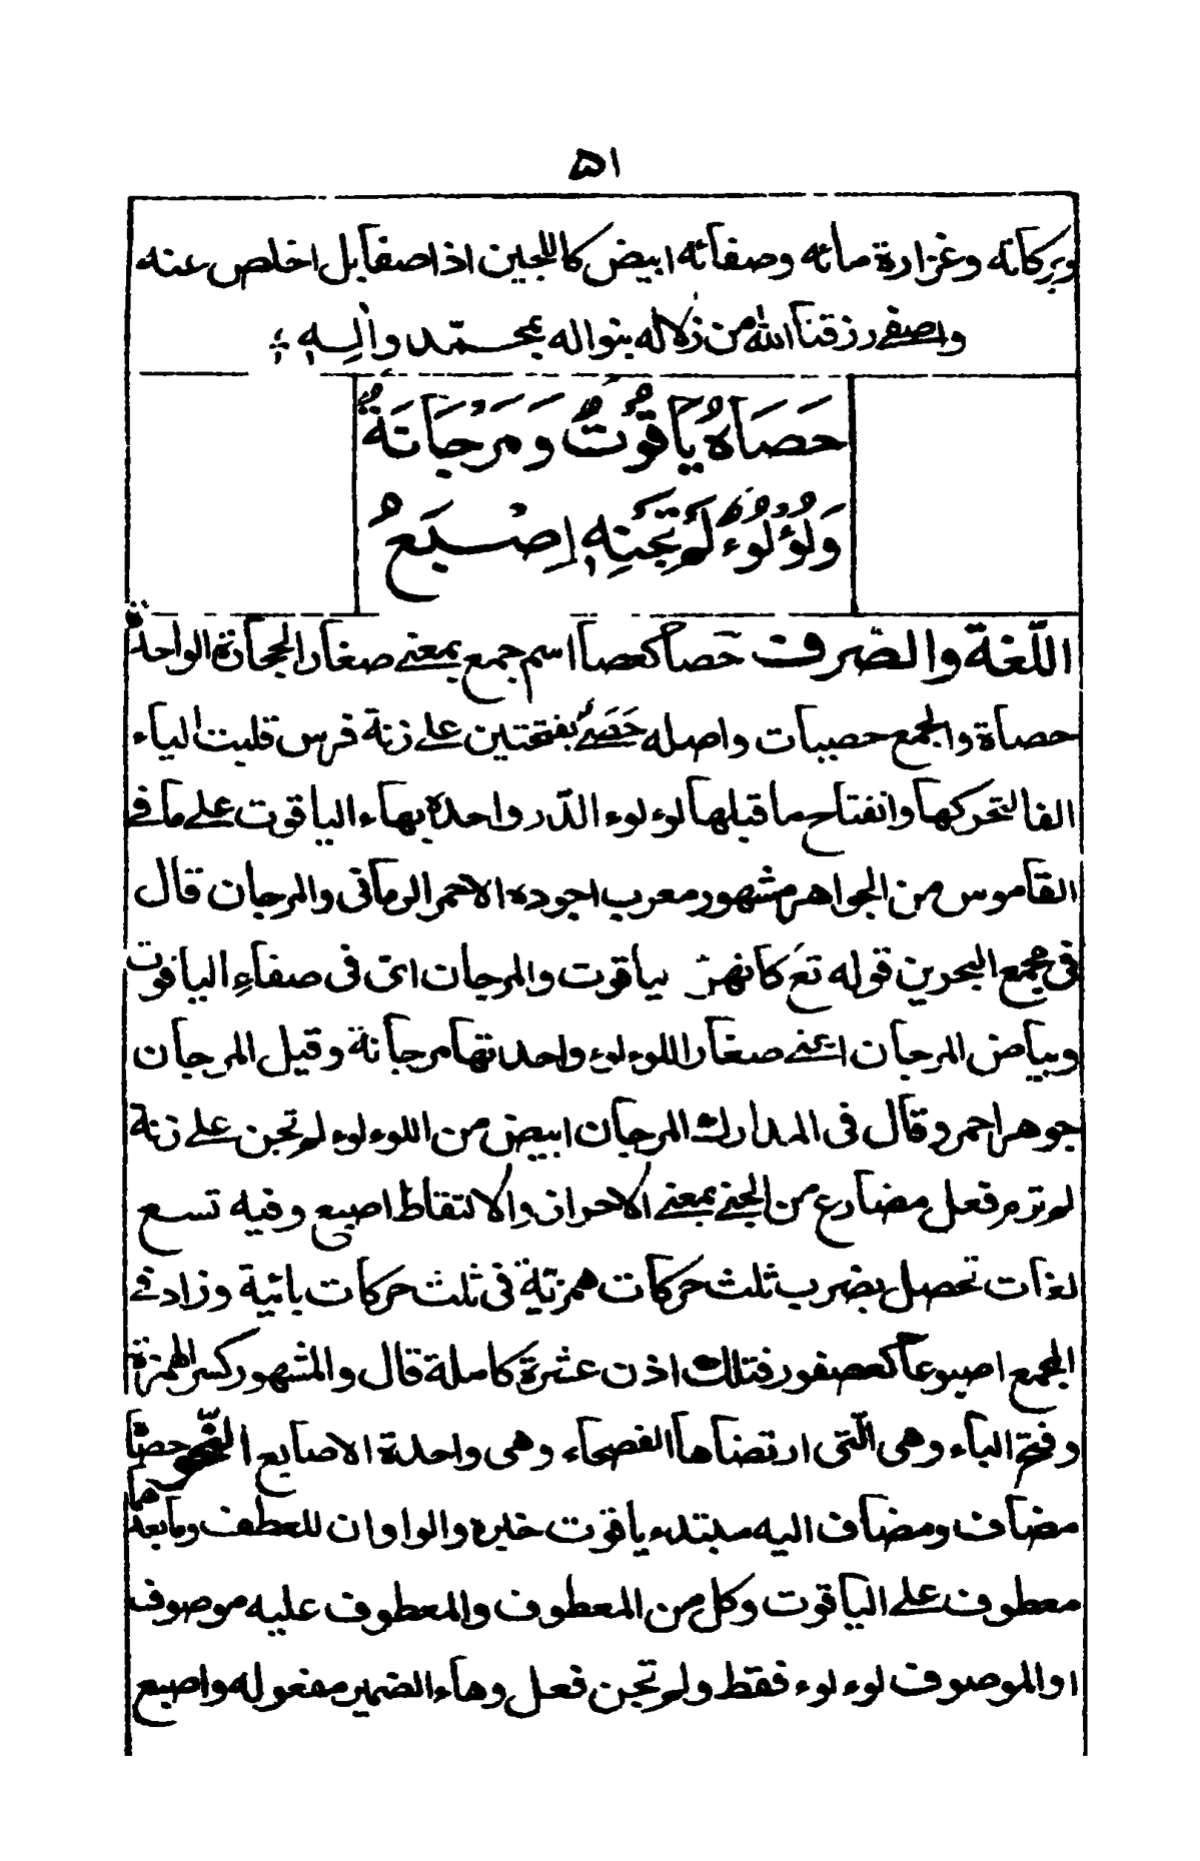 ۵۱
وبركاته وغزارة مائه وصفائه ابيض كاللجين اذا صفا بل اخلص عنه
واصفى رزقنا الله من زلاله بنواله بمحمّد واٰلِهٖ
حَصَاهُ يَاقُوْتٌ وَمَرْجَانَةٌ
وَلُؤْلُوءٌ لَمْ تَجْنِهٖ اِصْبَعُ
اللّغة والصّرف حَصاً كعصاً اسم جمع بمعنى صغار الحجارة الواحدة
حصاة والجمع حصيات واصله حَصَىٌ بفتحتين على زنة فرس قلبت الياء
الفا لتحركها وانفتاح ما قبلها لوء لوء الدّر واحده بهاء الياقوت على ما فى
القاموس من الجواهر مشهور معرب اجوده الاحمر الرمانى والمرجان قال
فى مجمع البحرين قوله تعَ كانهنّ ياقوت والمرجان اى فى صفاءِ الياقوت
وبياض المرجان اعنى صغار اللوء لوء واحدتها مرجانة وقيل المرجان
جوهر احمر وقال فى المدارك المرجان ابيض من اللوء لوء لم تجن على زنة
لم ترم فعل مضارع من الجنى بمعنى الاحراز والالتقاط اصبع وفيه تسع
لغات تحصل بضرب ثلث حركات همزيّة فى ثلث حركات بائية وزاد فى
المجمع اصبوعا كعصفور فتلك اذن عشرة كاملة قال والمشهور كسر الهمزة
وفتح الباء وهى الّتى ارتضاها الفصحاء وهى واحدة الاصابع النّحو حصاه
مضاف ومضاف اليه مبتدء ياقوت خبره والواوان للعطف وما بعدهما
معطوف على الياقوت وكل من المعطوف والمعطوف عليه موصوف
او الموصوف لوء لوء فقط ولم تجن فعل وهاء الضمير مفعوله واصبع